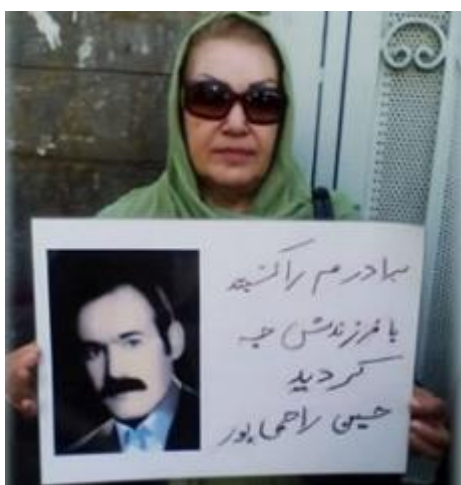 برادرم را کشتید
با فرزندش چه
کردید
حسین راحمی پور